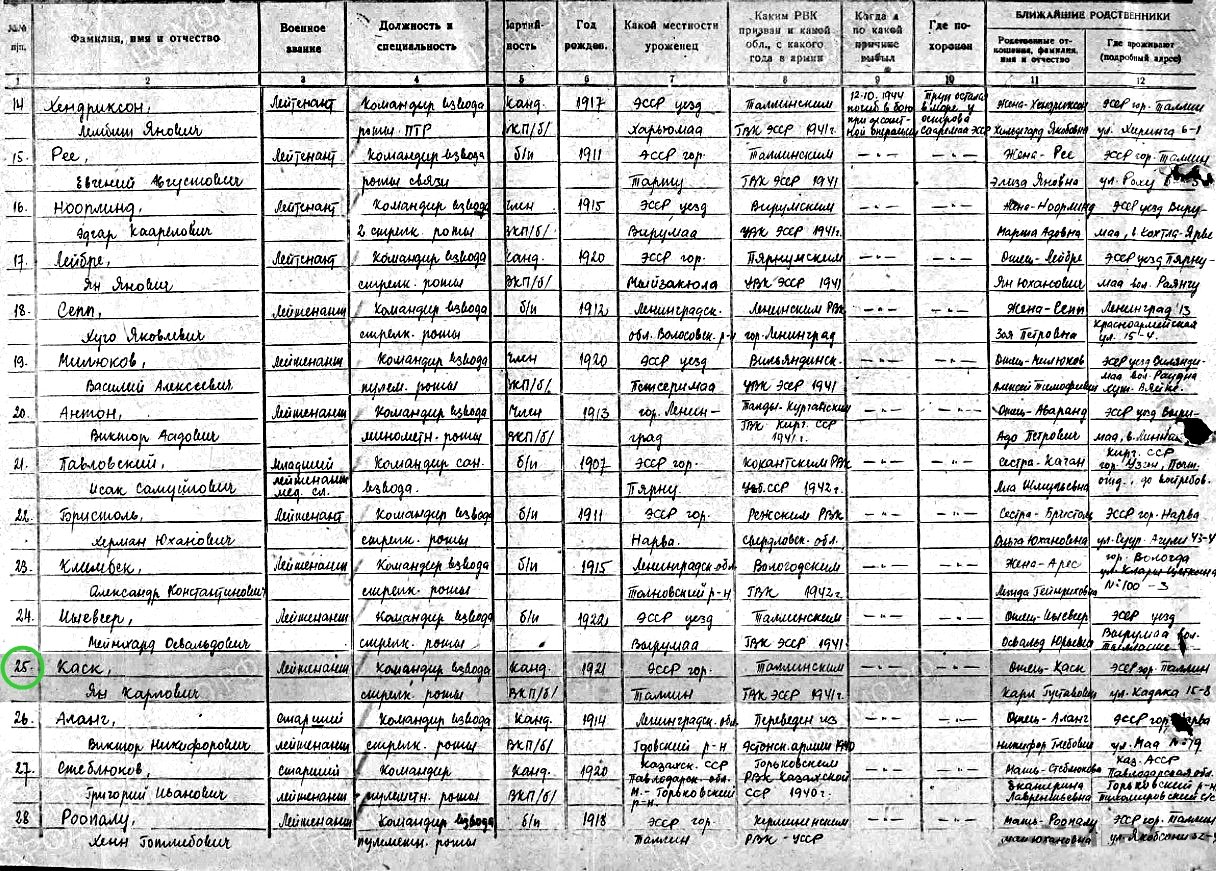 №№ п/п. | Фамилия, имя и отчество | Военное звание | Должность и специальность | Партий- ность | Год рожден. | Какой местности уроженец | Каким РВК призван и какой обл., с какого года в армии | Когда и по какой причине выбыл | Где по- хоронен | БЛИЖАЙШИЕ РОДСТВЕННИКИ
Родственные от- ношения, фамилия, имя и отчество | Где проживают (подробный адрес)
1 2 3 4 5 6 7 8 9 10 11 12
14 Хендриксон, Лейтенант Командир взвода Канд. 1917 ЭССР уезд Таллинским 12.10.1944 погиб в бою при десант- ной операции Труп остался в море у острова Сааремаа ЭССР Жена-Хендриксон ЭССР гор. Таллин
Лембит Янович роты ПТР ВКП/б/ Харьюмаа ГВК ЭССР 1941г. Хильдегард Яковбовна ул. Херинга 6-1
15. Рее, Лейтенант Командир взвода б/п 1911 ЭССР гор. Таллинским -"- -"- Жена-Рее ЭССР гор. Таллин
Евгений Августович роты связи Тарту ГВК ЭССР 1941 Элиза Яновна ул. Раху
16. Ноорлинд, Лейтенант Командир взвода член 1915 ЭССР уезд Вирумским -"- -"- Жена-Ноорлинд ЭССР уезд Виру-
Эдгар Каарелович 2 стрелк. роты ВКП/б/ Вирумаа УВК ЭССР 1941г. Марта Адовна маа, в. Кохтла-Ярве
17. Лейбре, Лейтенант Командир взвода Канд. 1920 ЭССР гор. Пярнумским -"- -"- Отец-Лейбре ЭССР уезд Пярну-
Ян Янович стрелк. роты ВКП/б/ Мыйзакюла УВК ЭССР 1941 Ян Юхансович маа вол. Раянгу
18. Сепп, Лейтенант Командир взвода б/п 1912 Ленинградск. Ленинским РВК -"- -"- Жена-Сепп Ленинград 13
Хуго Яковлевич стрелк. роты обл. Волосовск. р-н гор. Ленинград Зоя Петровна Красноармейская ул. 15-4.
19. Милюков, Лейтенант Командир взвода Член 1920 ЭССР уезд Вильяндинск. -"- -"- Отец-Милюков ЭССР уезд Вилянди-
Василий Алексеевич пулем. роты ВКП/б/ Петсеримаа УВК ЭССР 1941 Алексей Тимофеевич маа вол. Раудна хут. Вяйке.
20. Антон, Лейтенант Командир взвода Член 1913 гор. Ленин- -"- -"- Отец-Аваранд ЭССР уезд Выру-
Виктор Аадович минометн. роты ВКП/б/ град ГВК Кирг. ССР 1941г. Адо Петрович маа,
21. Павловский, Младший Командир сан. б/п 1907 ЭССР гор. Кокантским РВК -"- -"- Сестра-Каган Кирг. ССР гор. Узген, Почт.
Исак Самуйлович лейтенант мед. сл. взвода. Пярну Узб. ССР 1942г. Лиа Шмульевна отд., до востребов.
22. Бористоль, Лейтенант Командир взвода б/п 1911 ЭССР гор. Режским РВК -"- -"- Сестра-Бристоль ЭССР гор. Нарва
Херман Юханович стрелк. роты Нарва. Свердловск. обл. Ольга Юхановна ул. Суур. 43-4
23. Климбек, Лейтенант Командир взвода б/п 1915 Ленинградск. обл. Вологодским -"- -"- Жена-Арес гор. Вологда
Александр Константинович стрелк. роты р-н ГВК 1942г. Линда Гейнриховна ул. Клары Цеткина №100-3
24. Лейтенант Командир взвода б/п 1922 ЭССР уезд Таллинским -"- -"- ЭССР уезд
Мейнхард Освальдович стрелк. роты Вирумаа ГВК ЭССР 1941 Освальд Юрьевич Вирумаа вол.
25. Каск, Лейтенант Командир взвода Канд. 1921 ЭССР гор. Таллинским -"- -"- Отец-Каск ЭССР гор. Таллин
Ян Карлович стрелк. роты ВКП/б/ Таллин ГВК ЭССР 1941г. Карл Густавович ул. Кадака 15-8
26. Аланг, старший Командир взвода Канд. 1914 Ленинградск. обл. Переведен из -"- -"- Отец-Аланг ЭССР гор. Нарва
Виктор Никифорович лейтенант стрелк. роты ВКП/б/ Гдовский р-н Эстонск. армии 1940 Никифор Глебович ул. Маа №19
27. Стеблюков, старший Командир Канд. 1920 Казахск. ССР Павлодарск. обл. Горьковским -"- -"- Мать-Стеблюкова Каз. АССР Павлодарская обл.
Григорий Иванович лейтенант пулеметн. роты ВКП/б/ М.-Горьковский р-н. РВК Казахской ССР 1940г. Екатерина Лаврентьевна Горьковский р-н Тихомировский с/с
28 Роопалу, Лейтенант Командир взвода б/п 1918 ЭССР гор. -"- -"- Мать-Роопалу ЭССР гор. Таллин
Хенн Готлибович пулеметн. роты Таллин РВК - УССР Юхановна ул. Якобсони